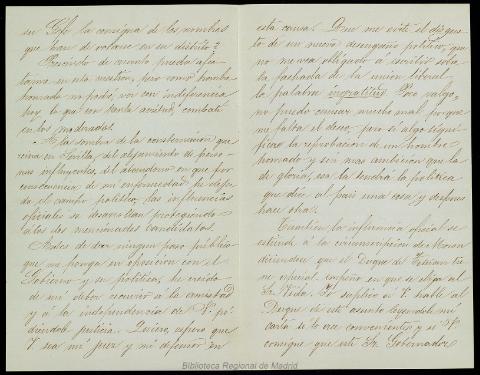 su Gefe la consigna de los nombres
que han de votarse en su distrito?
Prescindo de cuanto pueda afec-
tarme en esta cuestion, pero como hombre
honrado no podía ver con indiferencia
hoy lo que con tanta acritud, combatí
en los moderados.
A la sombra de la consternacion que
reina en Sevilla, del alejamiento de perso-
nas influyentes, del abandono en que por
consecuencia de mi enfermedad he deja-
do el campo politico, las influencias
oficiales se desarrollan protegiendo
á los mencionados candidatos.
Antes de dar ningun paso público
que me ponga en oposicion con el
Gobierno y su politica, he creido
de mi deber recurrir á la amistad
y á la independencia de V. pi-
diendole justicia. Quiero, espero que
V sea mi juez y mi defensor en
esta causa. Que me evite el disgus-
to de un nuevo desengaño politico, que
no me vea obligado á escribir sobre
la fachada de la union liberal
la palabra inmoralidad. Poco valgo,
no puedo causar mucho mal porque
me falta el deseo, pero si algo signi-
fica la reprobacion de un hombre
honrado y sin mas ambicion que la
de gloria, esa la tendrá la politica
que dice al pais una cosa y despues
hace otra.
Tambien la influencia oficial se
estiende á la circunscripcion de Moron
diciendose que el Duque de Tetuan tie-
ne oficial empeño en que se elija al
Sr. Vida. Yo suplico á V. hable al
Duque de este asunto leyendole mi
carta si lo cree conveniente, y si V
consigue que este Sr. Gobernador
Biblioteca Regional de Madrid